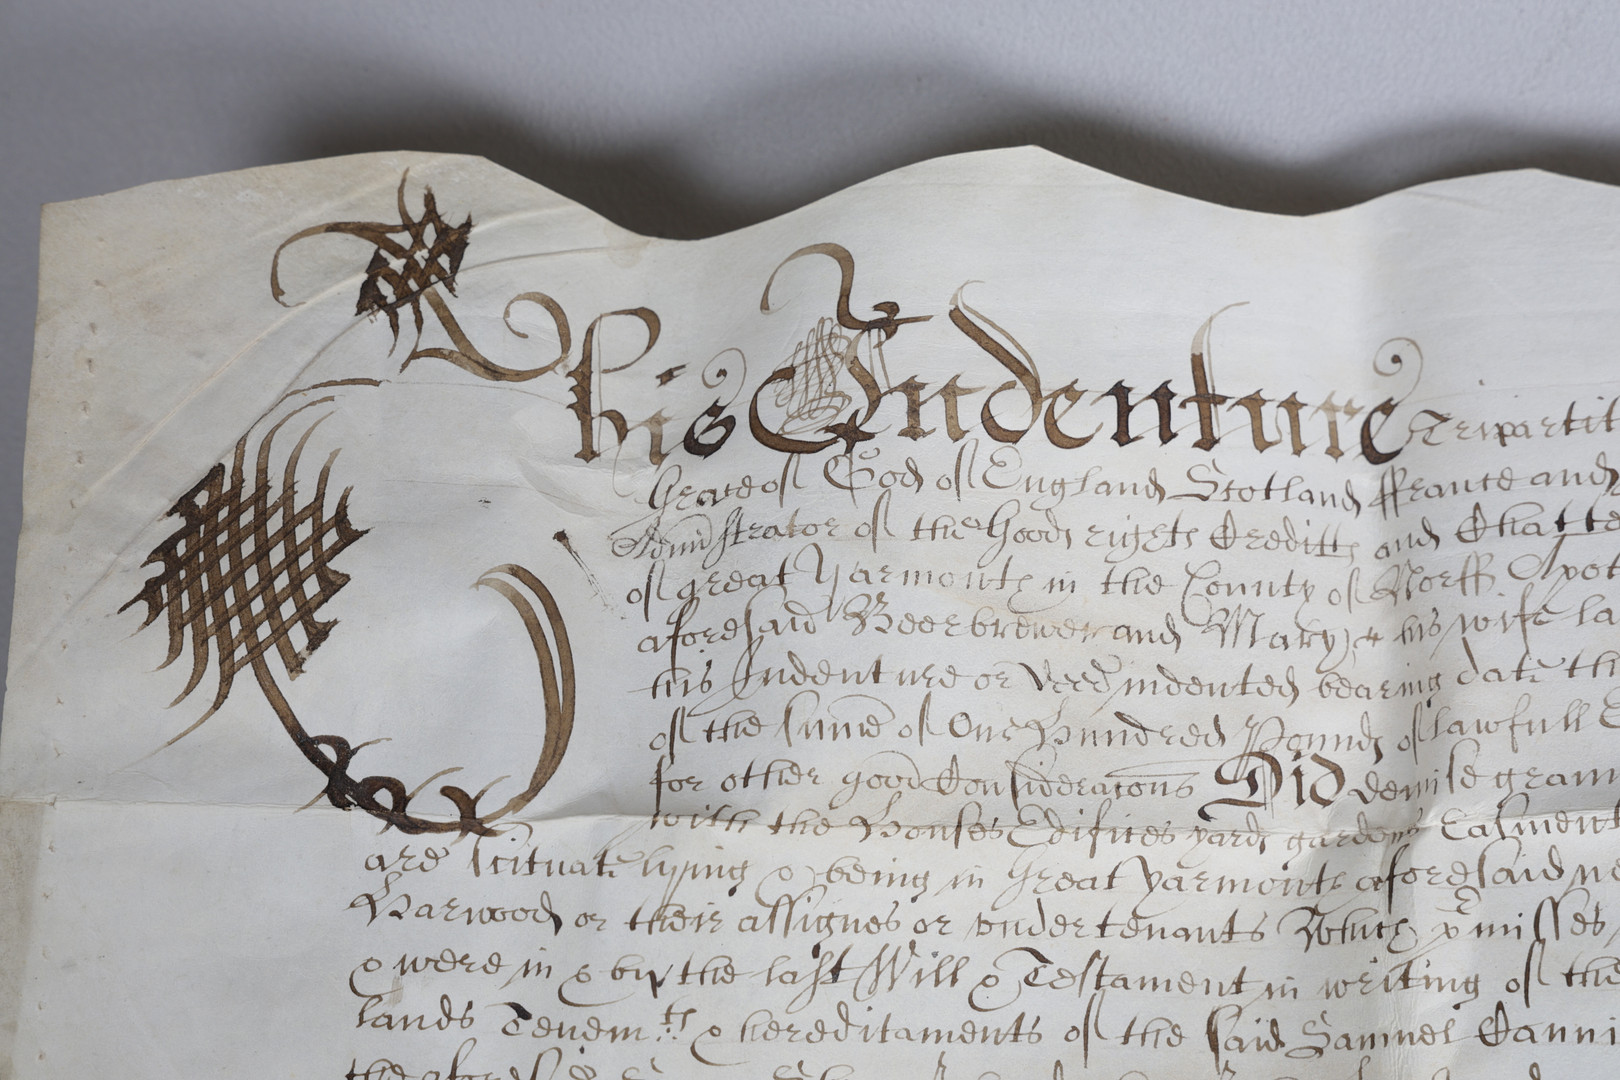 This Indenture Tripartit
Grace of God of England Scotland ffrance and
Adm̄strator of the Goods rights Creditts and Chatte
of great Yarmouth in the County of Norff Apot
aforesaid Beerbrewer and Mary his wife la
this Indenture or Deed indented bearing date th
of the sum̄e of One Hundred Pounds of lawfull E
for other good Consideracons Did demise graun
with the Houses Edifices yards gardens Easment
are scituate lying & being in Great Yarmouth aforesaid no
Harwood or their assignes or undertenants Which p̱misses
& were in & by the last Will & Testament in writing of the
lands Tenem:ts & hereditaments of the said Samuel Canni